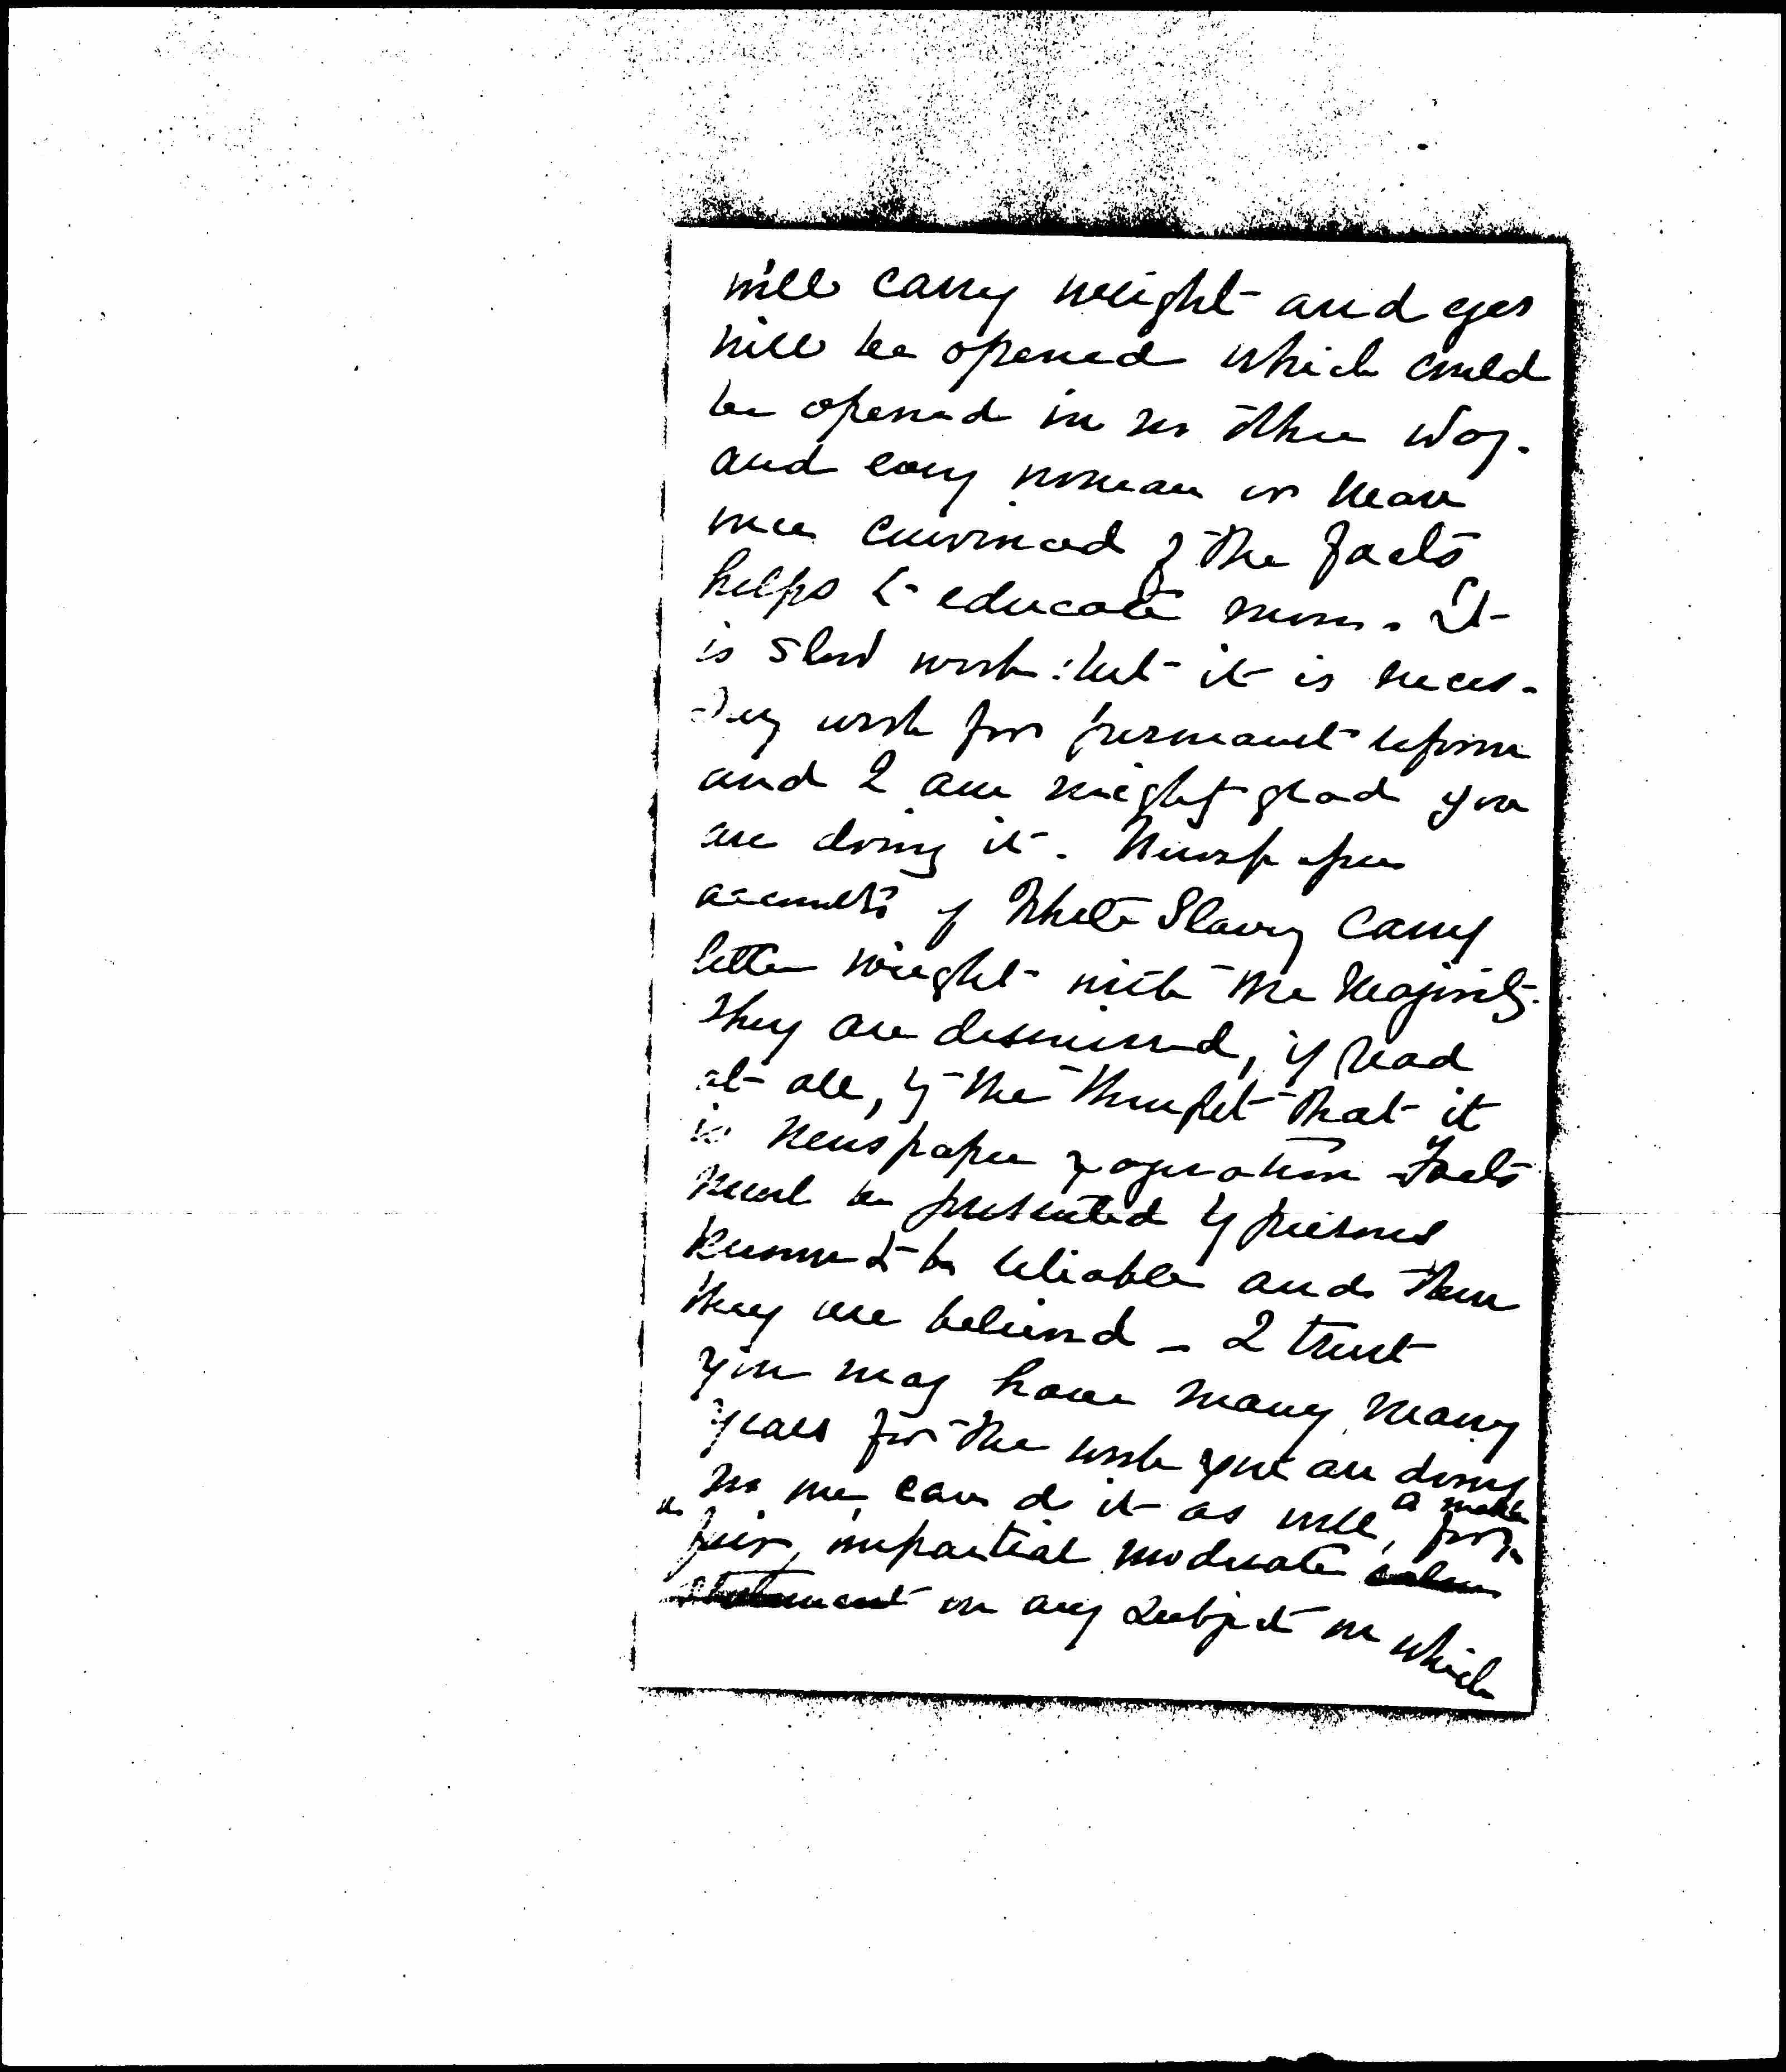 will carry weight and eyes
will be opened which could
be opened in no other way.
and every woman or man
once convinced of the facts
helps to educate more. It
is slow work: but it is neces-
sary work for permanent reform
and I am mighty glad you
are doing it. Newspaper
accounts of White Slavery carry
little weight with the majority.
They are dismissed, if read
at all, by the thought that it
is newspaper exageration Facts
must be presented by persons
known to be reliable and then
they are believed - I trust
you may have many many
years for the work you are doing
no one can do it as well, for
a
fair, impartial moderate calm
statement on any subject on which